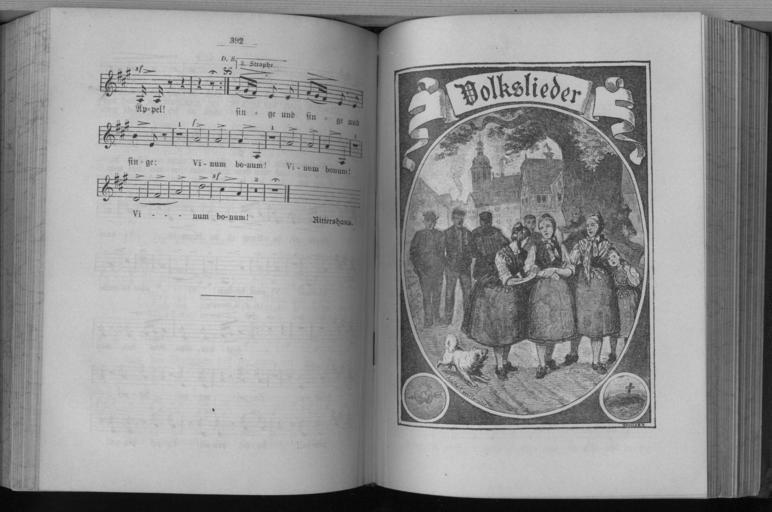 392
D. S.
2. Strophe.
Äp-pel! sin - ge und sin - ge und
sin-ge: Vi-num bo-num! Vi-num bonum!
Vi - - - num bo-num! Rittershaus.
Volkslieder